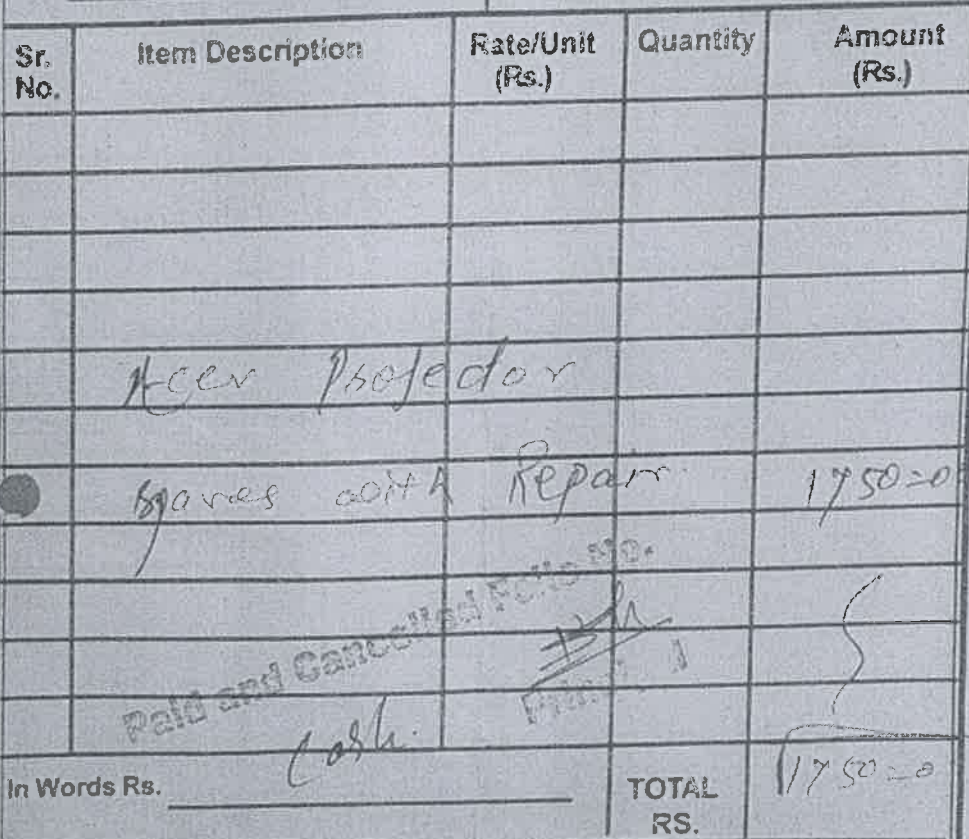 Sr. No. Item Description Rate/Unit (Rs.) Quantity Amount (Rs.)
Acer Projector
Spares with Repair 1750=0
Paid and Cancelled Folio No.
Cash.
In Words Rs. TOTAL RS. 1750=0